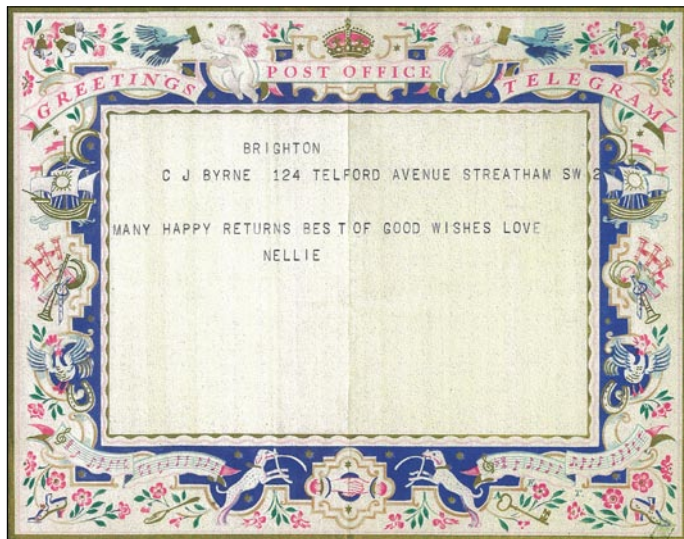 GREETINGS POST OFFICE TELEGRAM
BRIGHTON
C J BYRNE 124 TELFORD AVENUE STREATHAM SW 2
MANY HAPPY RETURNS BEST OF GOOD WISHES LOVE
NELLIE